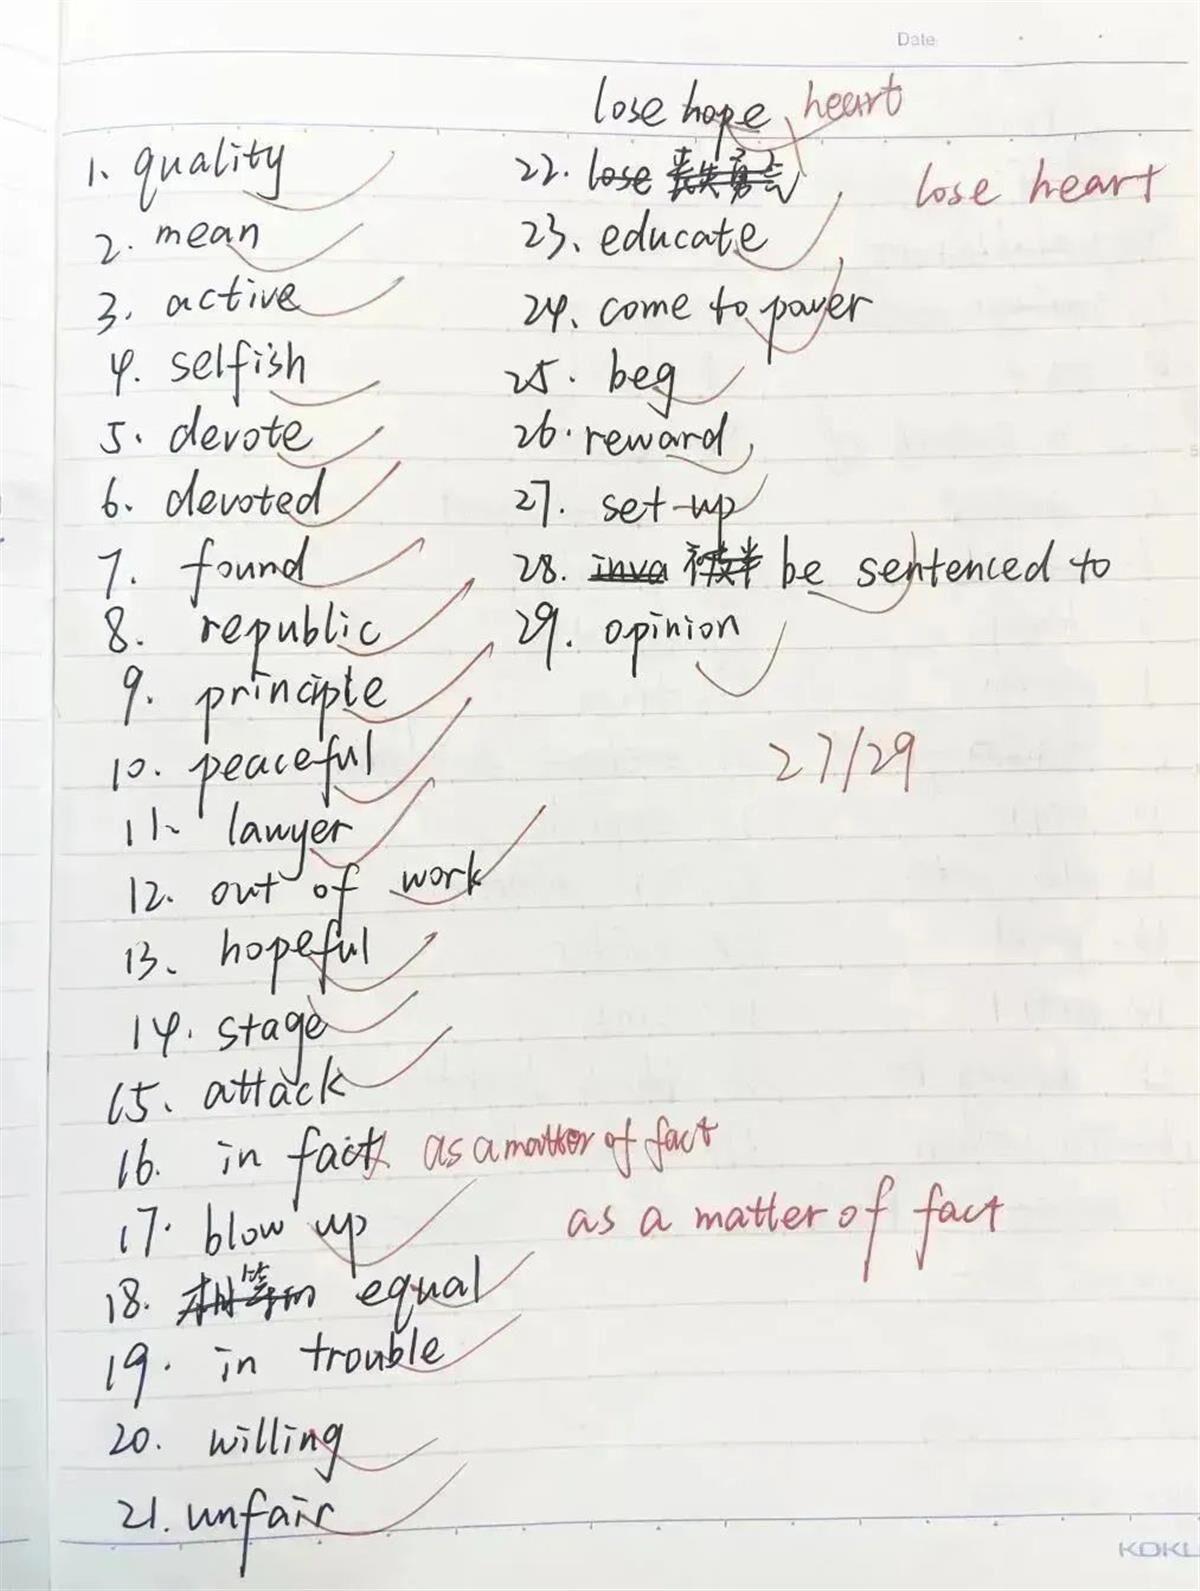 Date
1. quality
2. mean
3. active
4. selfish
5. devote
6. devoted
7. found
8. republic
9. principle
10. peaceful
11. lawyer
12. out of work
13. hopeful
14. stage
15. attack
16. in fact as a matter of fact
as a matter of fact
17. blow up
18. 相等的 equal
19. in trouble
20. willing
21. unfair
lose hope heart
22. lose 丧失勇气
lose heart
23. educate
24. come to power
25. beg
26. reward
27. set up
28. inva 被判 be sentenced to
29. opinion
27/29